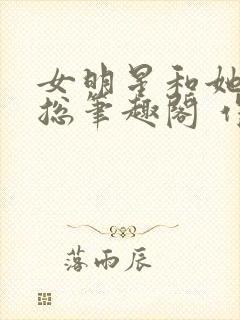 女明星和她
总笔趣阁
落雨辰